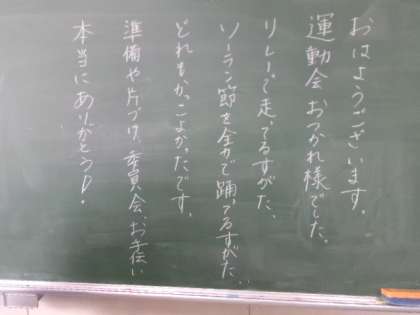 おはようございます。
運動会 おつかれ様でした。
リレーで走ってるすがた、
ソーラン節を全力で踊ってるすがた、
どれもかっこよかったです。
準備や片づけ、委員会、お手伝い
本当にありがとう!